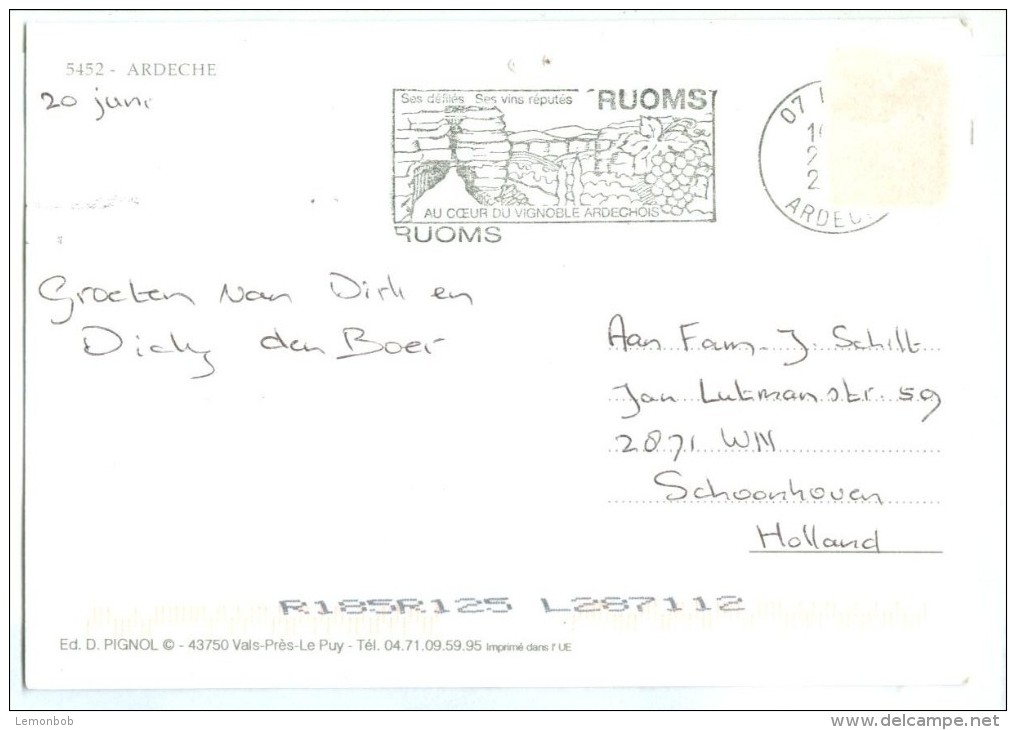 5452 - ARDECHE
20 juni
Ses défilés Ses vins réputés RUOMS
AU CŒUR DU VIGNOBLE ARDECHOIS
RUOMS
07
ARDEC
Groeten van Dirk en
Dicky den Boer
Aan Fam. J. Schilt
Jan Lutmanstr. 59
2871 WN
Schoonhoven
Holland
R185R125 L287112
Ed. D. PIGNOL © - 43750 Vals-Près-Le Puy - Tél. 04.71.09.59.95 Imprimé dans l'UE
Lemonbob
www.delcampe.net